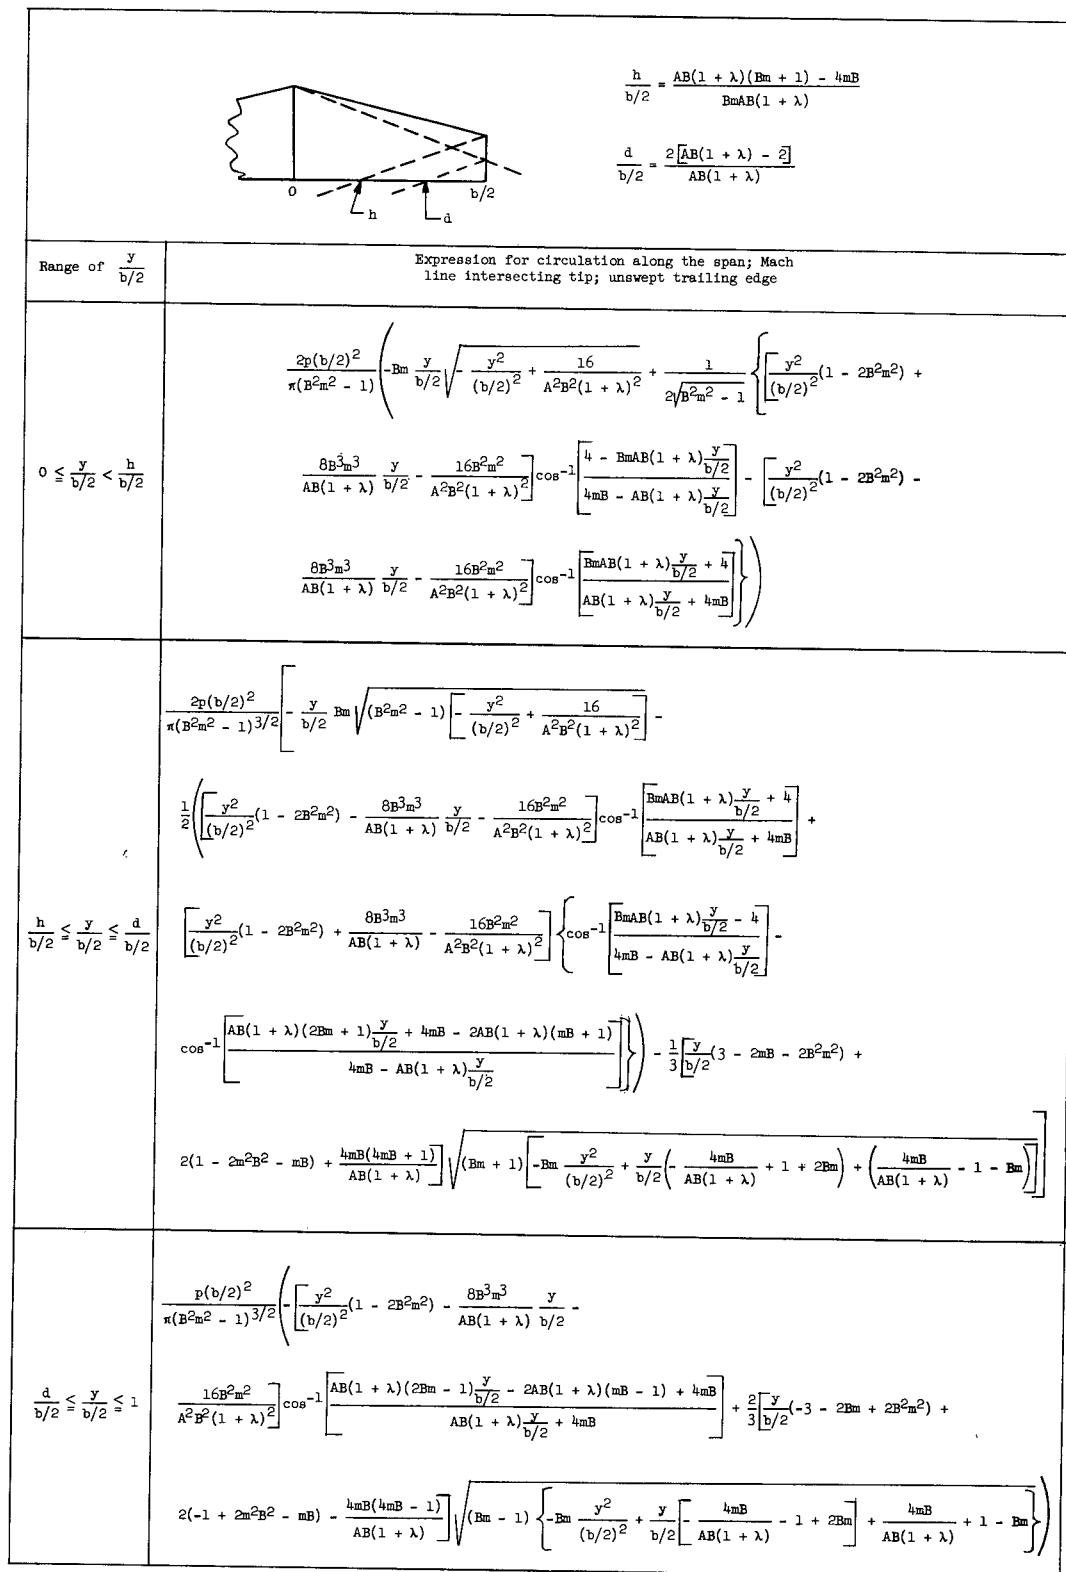 h/(b/2) = (AB(1 + λ)(Bm + 1) - 4mB)/(BmAB(1 + λ))
d/(b/2) = 2[AB(1 + λ) - 2]/(AB(1 + λ))
0 b/2
h d
Range of y/(b/2)
Expression for circulation along the span; Mach
line intersecting tip; unswept trailing edge
0 ≦ y/(b/2) < h/(b/2)
2p(b/2)²/(π(B²m² - 1)) (-Bm y/(b/2) √(- y²/(b/2)² + 16/(A²B²(1 + λ)²)) + 1/(2√(B²m² - 1)) {[y²/(b/2)² (1 - 2B²m²) +
8B³m³/(AB(1 + λ)) y/(b/2) - 16B²m²/(A²B²(1 + λ)²)] cos⁻¹[(4 - BmAB(1 + λ) y/(b/2))/(4mB - AB(1 + λ) y/(b/2))] - [y²/(b/2)² (1 - 2B²m²) -
8B³m³/(AB(1 + λ)) y/(b/2) - 16B²m²/(A²B²(1 + λ)²)] cos⁻¹[(BmAB(1 + λ) y/(b/2) + 4)/(AB(1 + λ) y/(b/2) + 4mB)]})
h/(b/2) ≦ y/(b/2) ≦ d/(b/2)
2p(b/2)²/(π(B²m² - 1)^(3/2)) [- y/(b/2) Bm √((B²m² - 1)[- y²/(b/2)² + 16/(A²B²(1 + λ)²)]) -
1/2 ([y²/(b/2)² (1 - 2B²m²) - 8B³m³/(AB(1 + λ)) y/(b/2) - 16B²m²/(A²B²(1 + λ)²)] cos⁻¹[(BmAB(1 + λ) y/(b/2) + 4)/(AB(1 + λ) y/(b/2) + 4mB)] +
[y²/(b/2)² (1 - 2B²m²) + 8B³m³/(AB(1 + λ)) - 16B²m²/(A²B²(1 + λ)²)] {cos⁻¹[(BmAB(1 + λ) y/(b/2) - 4)/(4mB - AB(1 + λ) y/(b/2))] -
cos⁻¹[(AB(1 + λ)(2Bm + 1) y/(b/2) + 4mB - 2AB(1 + λ)(mB + 1))/(4mB - AB(1 + λ) y/(b/2))]}) - 1/3 [y/(b/2) (3 - 2mB - 2B²m²) +
2(1 - 2m²B² - mB) + 4mB(4mB + 1)/(AB(1 + λ))] √((Bm + 1)[-Bm y²/(b/2)² + y/(b/2) (- 4mB/(AB(1 + λ)) + 1 + 2Bm) + (4mB/(AB(1 + λ)) - 1 - Bm)])]
d/(b/2) ≦ y/(b/2) ≦ 1
p(b/2)²/(π(B²m² - 1)^(3/2)) (-[y²/(b/2)² (1 - 2B²m²) - 8B³m³/(AB(1 + λ)) y/(b/2) -
16B²m²/(A²B²(1 + λ)²)] cos⁻¹[(AB(1 + λ)(2Bm - 1) y/(b/2) - 2AB(1 + λ)(mB - 1) + 4mB)/(AB(1 + λ) y/(b/2) + 4mB)] + 2/3 [y/(b/2) (-3 - 2Bm + 2B²m²) +
2(-1 + 2m²B² - mB) - 4mB(4mB - 1)/(AB(1 + λ))] √((Bm - 1){-Bm y²/(b/2)² + y/(b/2) [- 4mB/(AB(1 + λ)) - 1 + 2Bm] + 4mB/(AB(1 + λ)) + 1 - Bm}))